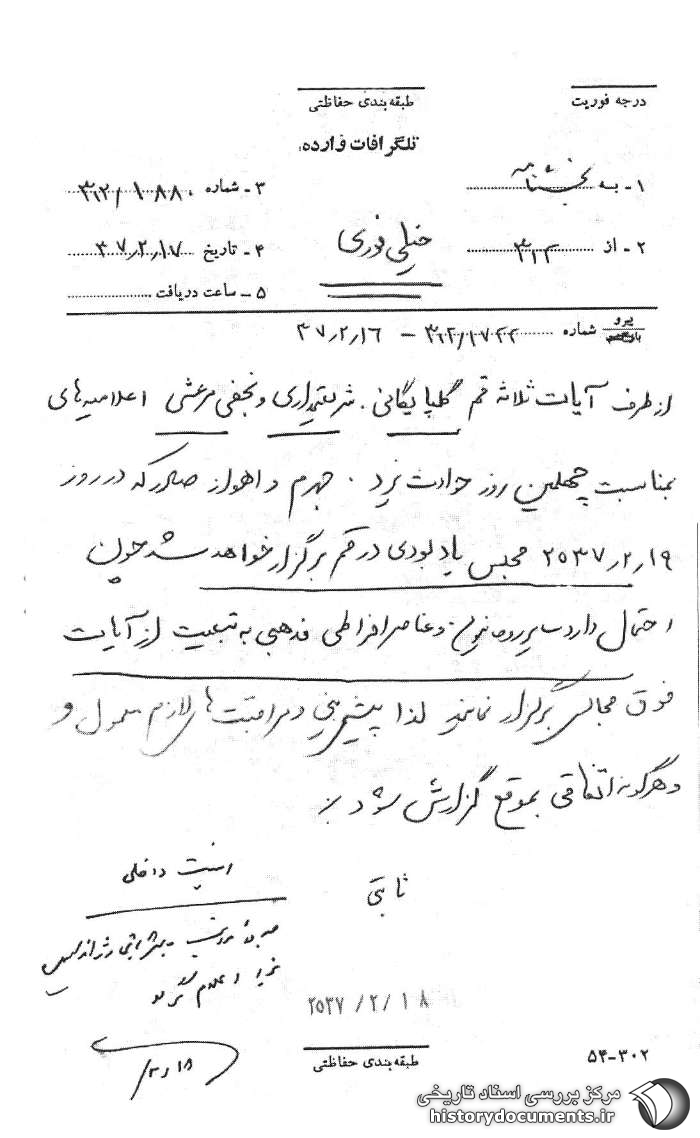 درجه فوریت
طبقه‌بندی حفاظتی
تلگرافات وارده:
۱ - به بخشنامه
۳ - شماره ۳۱۲/۱۸۸۰
۲ - از ۳۱۲
خیلی فوری
۴ - تاریخ ۳۷٫۲٫۱۷
۵ - ساعت دریافت
پیرو شماره ۳۱۲/۱۷۲۲ – ۳۷٫۲٫۱۶
از طرف آیات ثلاثه قم گلپایگانی، شریعتمداری و نجفی مرعشی اعلامیه‌های
بمناسبت چهلمین روز حوادث یزد، جهرم و اهواز صادر که در روز
۲۵۳۷٫۲٫۱۹ مجلس یادبودی در قم برگزار خواهد شد چون
احتمال دارد سایر روحانیون و عناصر افراطی مذهبی به تبعیت از آیات
فوق مجالسی برگزار نمایند لذا پیش‌بینی و مراقبت‌های لازم معمول و
و هرگونه اتفاقی بموقع گزارش شود
ثابتی
امنیت داخلی
اعلام
۲۵۳۷/۲/۱۸
طبقه‌بندی حفاظتی
۵۴-۳۰۲
مرکز بررسی اسناد تاریخی
historydocuments.ir